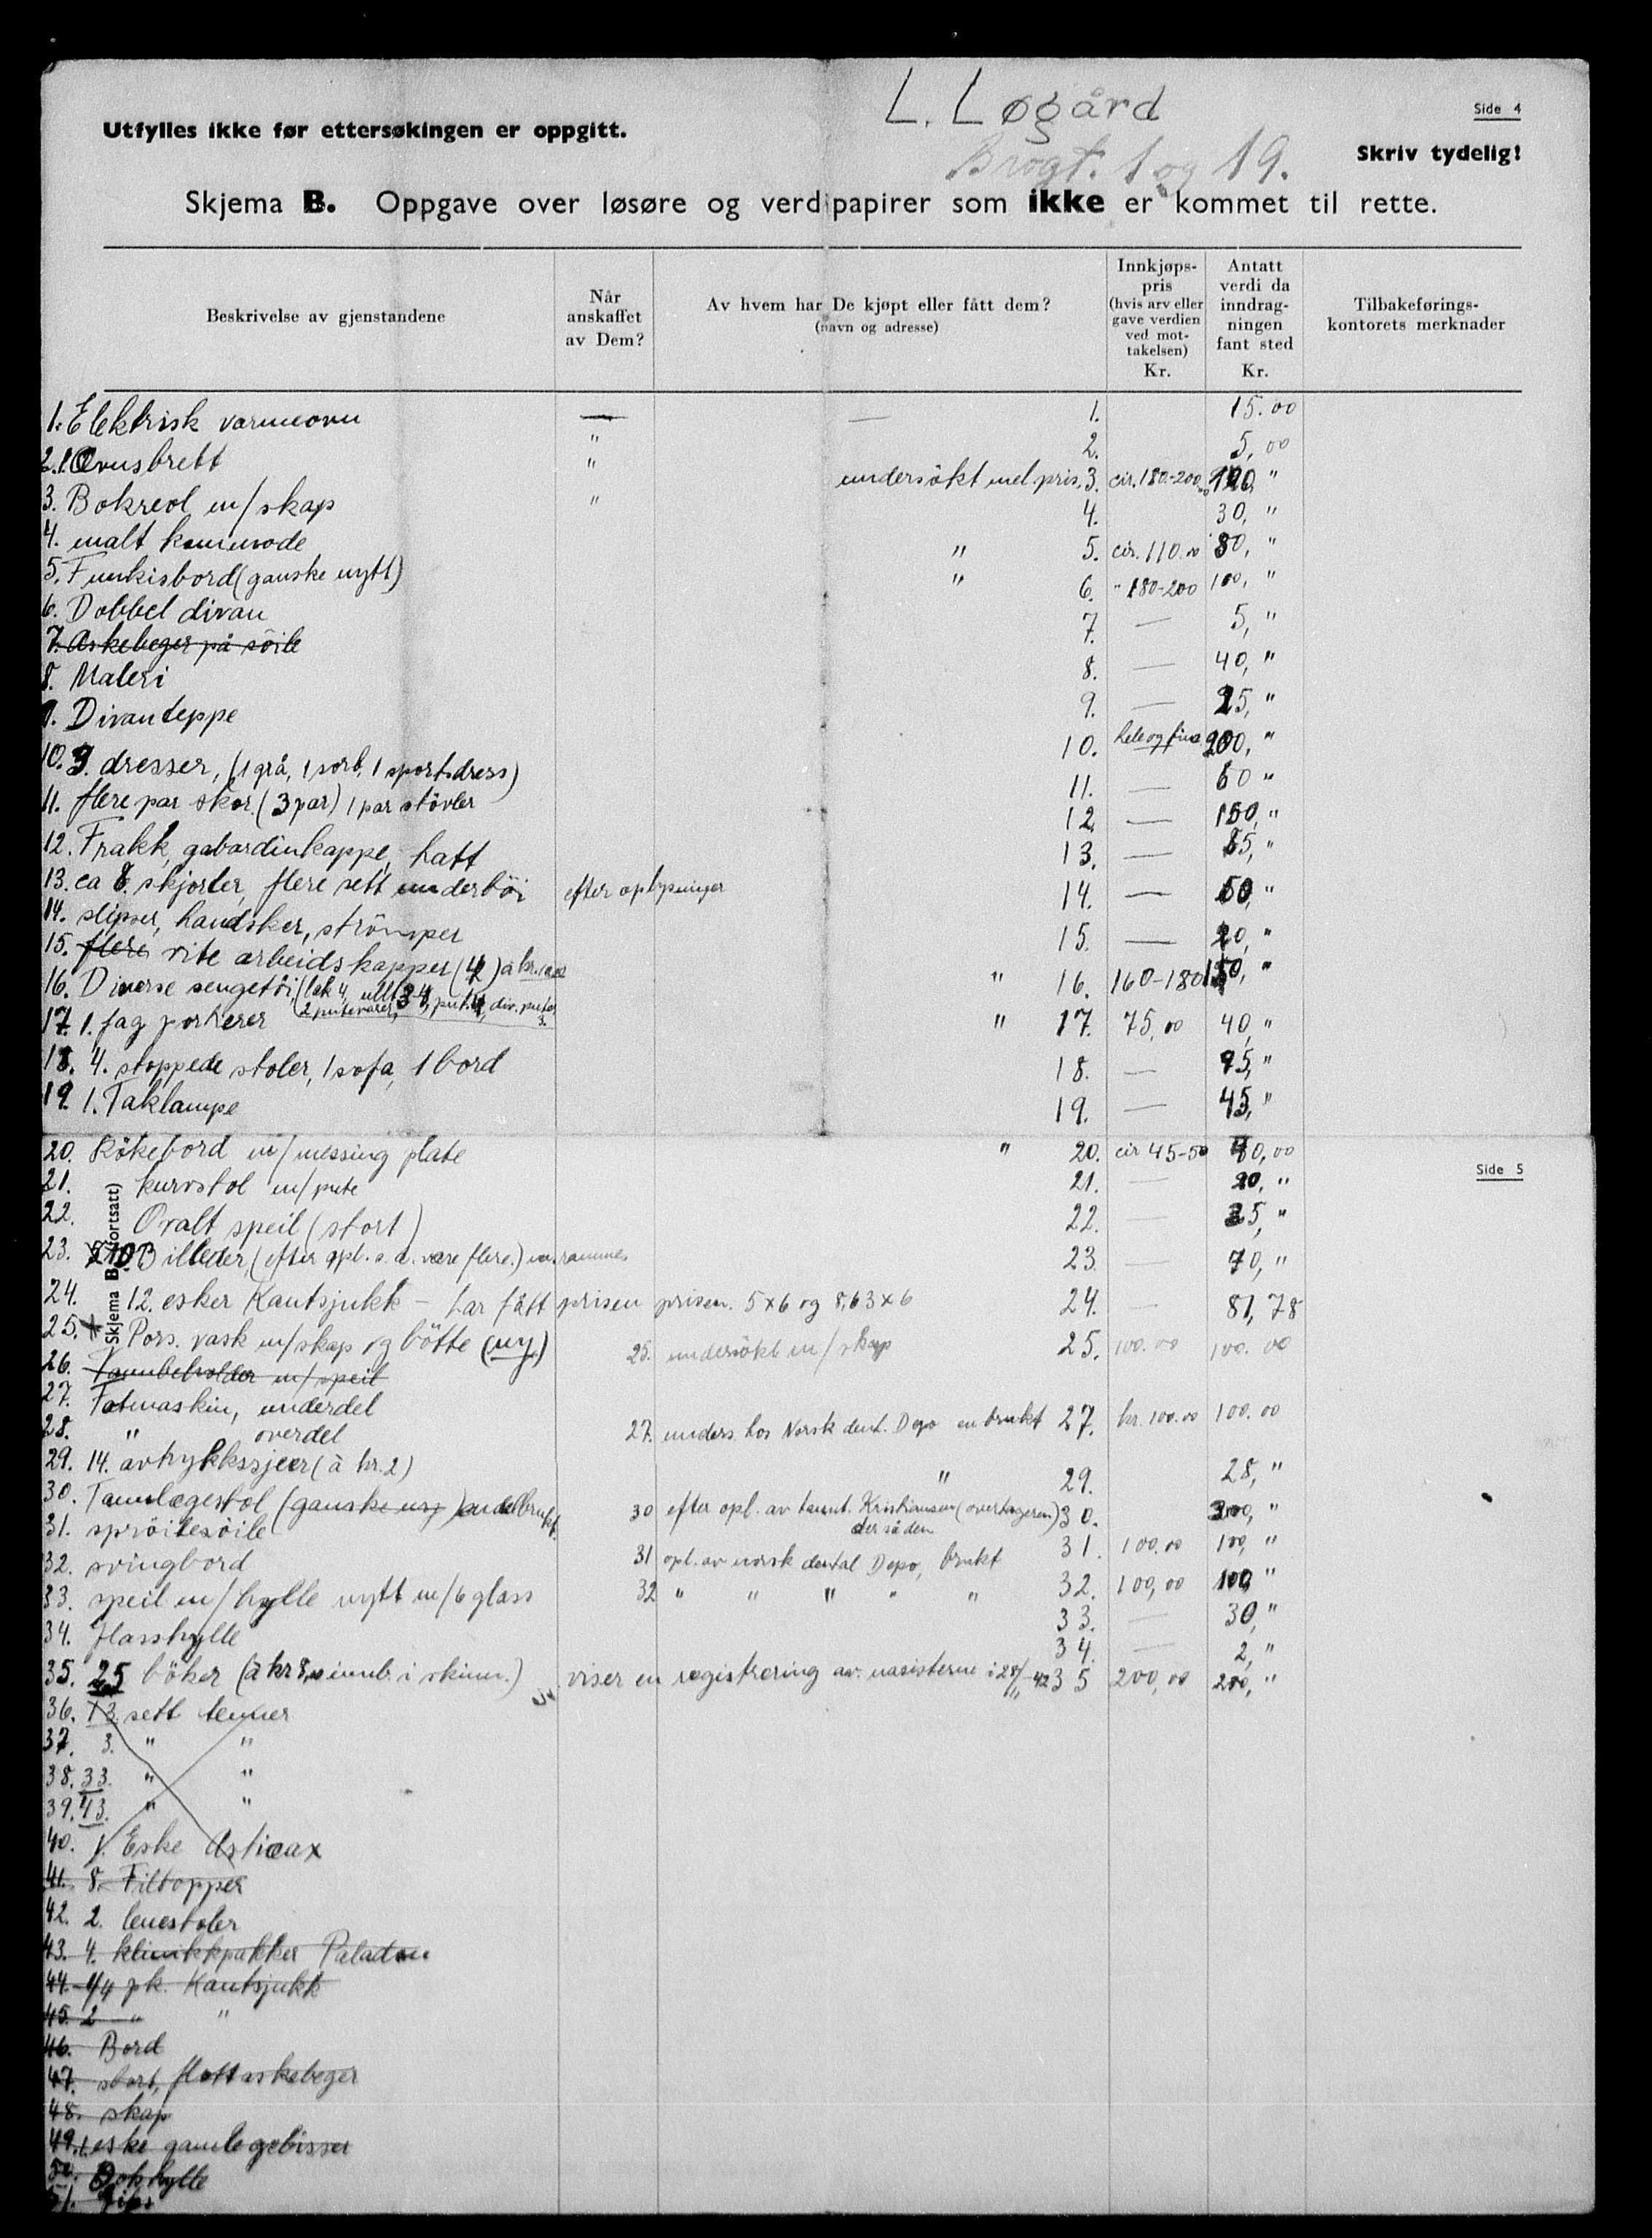 L. Løgård
Side 4
Utfylles ikke før ettersøkingen er oppgitt.
Brogt. 1 og 19.
Skriv tydelig!
Skjema B. Oppgave over løsøre og verdipapirer som ikke er kommet til rette.
Beskrivelse av gjenstandene
Når anskaffet av Dem?
Av hvem har De kjøpt eller fått dem? (navn og adresse)
Innkjøpspris (hvis arv eller gave verdien ved mottakelsen) Kr.
Antatt verdi da inndragningen fant sted Kr.
Tilbakeføringskontorets merknader
1. Elektrisk varmeovn — — 1. 15.00
2. 1 Ovnsbrett " 2. 5,00
3. Bokreol m/skap " undersökt med pris. 3. cir. 180.-200 "
4. malt kommode " 4. 30, "
5. Funkisbord (ganske nytt) " 5. cir. 110.00 80, "
6. Dobbel divan " 6. " 180-200 100, "
7. Askebeger på söile 7. — 5, "
8. Maleri 8. — 40, "
9. Divanteppe 9. — 25, "
10. 3. dresser, (1 grå, 1 sort, 1 sportsdress) 10. hele og fine 200, "
11. flere par skor. (3 par) 1 par stövler 11. — 60 "
12. Frakk, gabardinkappe, hatt 12. — 150, "
13. ca 8. skjorter, flere sett undertöi efter oplysninger 13. — 85, "
14. slipser, handsker, strömper 14. — 50, "
15. flere vite arbeidskapper (4) à kr. 15. — 20, "
16. Diverse sengetöi (lak 4, ull 3-4, put. 4, div. puter 3. 2 putevarer, " 16. 160-180 150, "
17. 1. fag portierer " 17. 75,00 40, "
18. 4. stoppede stoler, 1 sofa, 1 bord 18. — 95, "
19. 1. Taklampe 19. — 45, "
20. Rökebord m/messing plate " 20. cir 45-50 40,00
Side 5
Skjema B (fortsatt)
21. kurvstol m/pute 21. — 20, "
22. Ovalt speil (stort) 22. — 35, "
23. 10 Billeder, (efter opl. s. d. være flere.) m. rammer 23 — 70, "
24. 12. esker Kautsjukk – har fått prisen prisen. 5x6 og 8,63x6 24. — 81,78
25. Pors. vask m/skap og bötte (ny) 25. undersökt m/skap 25. 100.00 100.00
26. Tannbeholder m/speil
27. Fotmaskin, underdel 27. unders. hos Norsk dent. Depo en brukt 27. kr. 100.00 100.00
28. " overdel
29. 14. avtrykksskjeer (à kr. 2) " 29. 28, "
30. Tannlegestol (ganske ny) endel brukt. 30 efter opl. av tannt. Kristiansen (overtageren) der så den 30. 300, "
31. spröitesöile 31 opl. av norsk dental Depo, brukt 31. 100.00 100, "
32. svingbord 32 " " " " " 32. 100,00 100, "
33. speil m/hylle nytt m/6 glass 33. — 30, "
34. Glasshylle 34. — 2, "
35. 25 böker (à kr 8,00 innb. i skinn.) viser en registrering av. nasisterne i 28/11-42 35 200,00 200, "
36. 13 sett tenner
37. 3. " "
38. 33. " "
39. 43. " "
40. 1. Eske
41. 8. Filtopper
42. 2. lenestoler
43. 4. klinikkpakker Paladon
44. 1/4 pk. Kautsjukk
45. 2 " "
46. Bord
47. stort, flott askebeger
48. skap
49. 1. eske gamle gebisser
50. Bokhylle
51. Gips